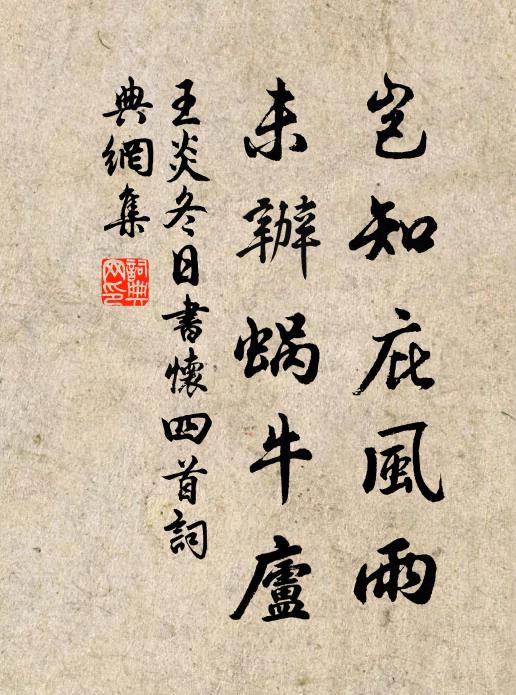 豈知庇風雨
未辦蝸牛廬
王炎冬日書懷四首詞
典網集
詞典网印